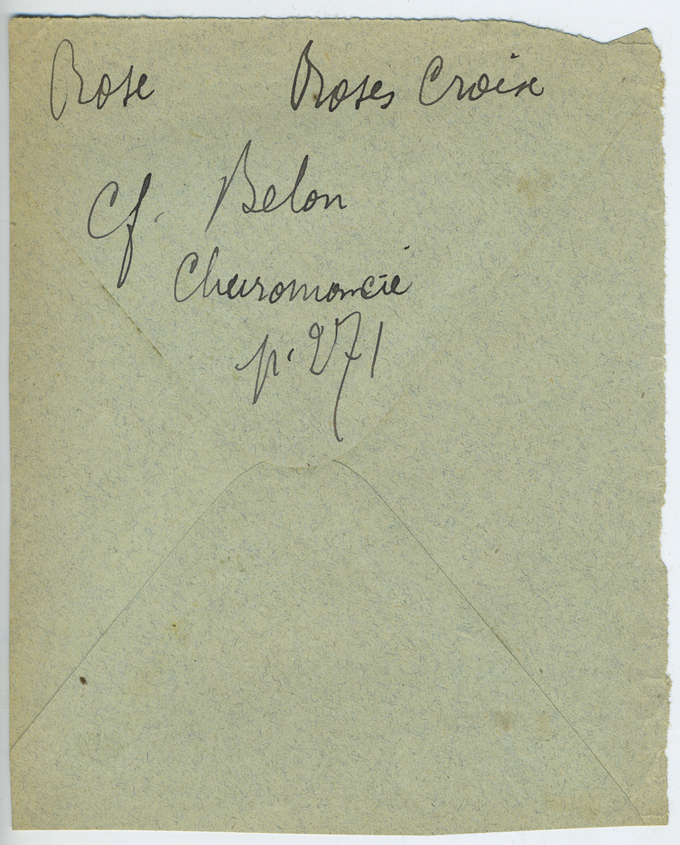 Rose Roses Croix
Cf. Belon
Cheiromancie
p. 271